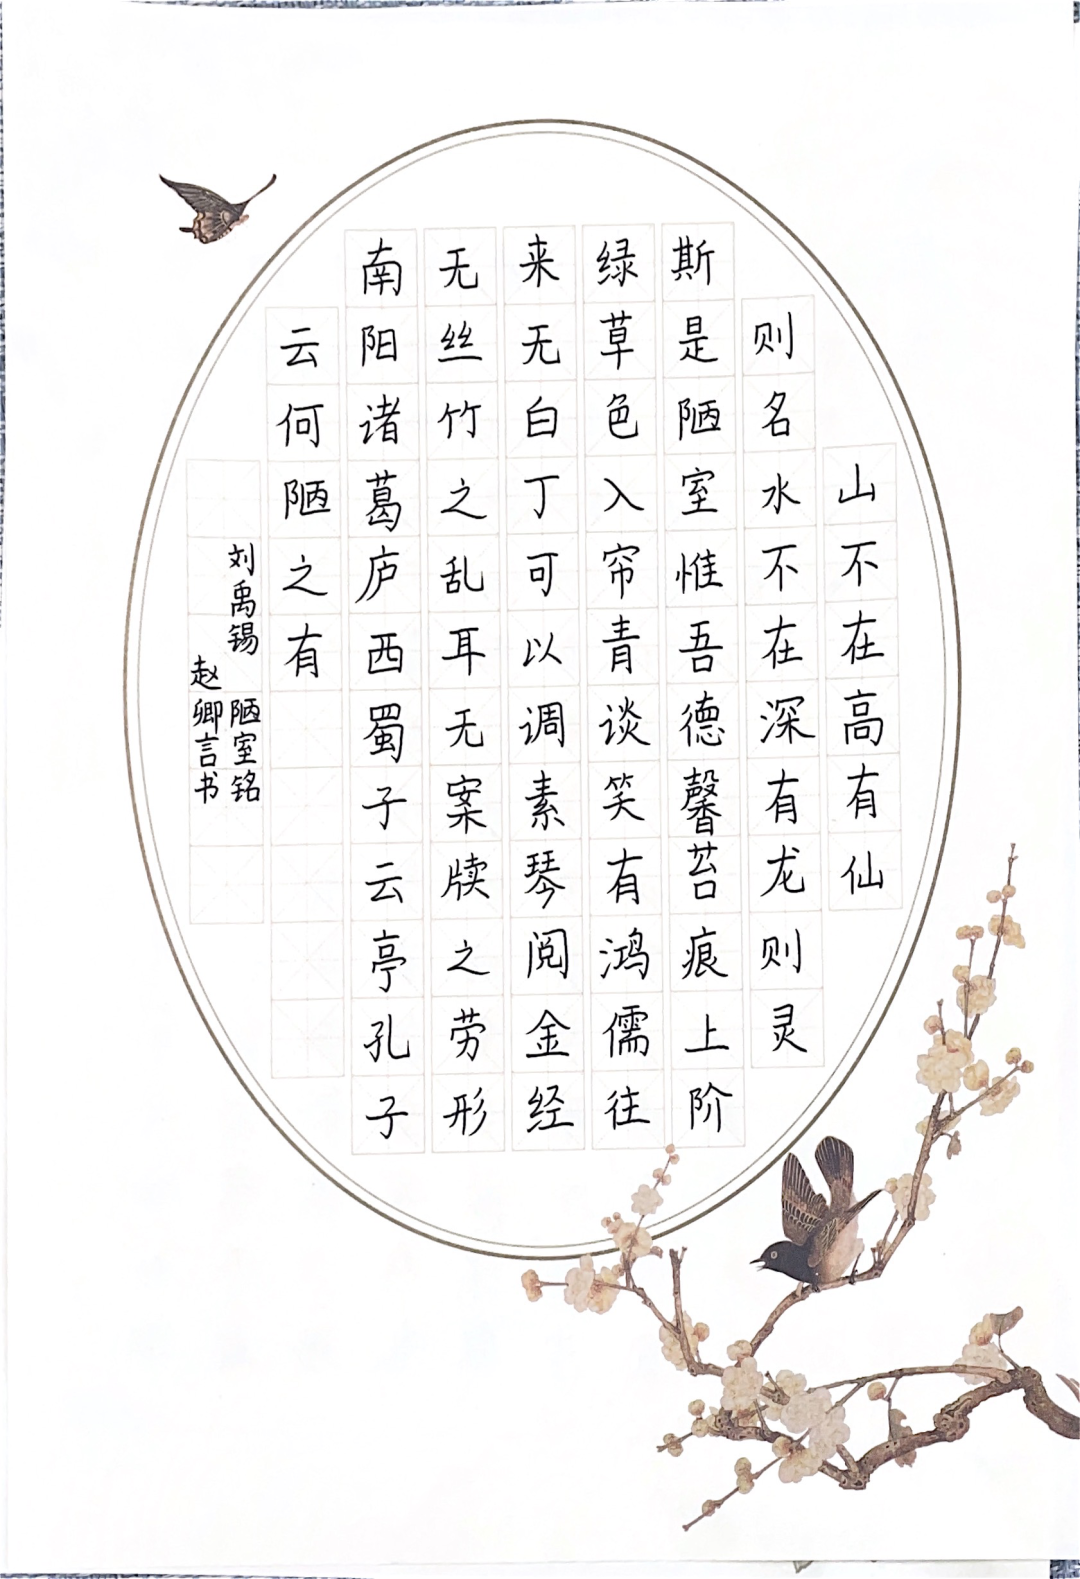 山不在高有仙
则名水不在深有龙则灵
斯是陋室惟吾德馨苔痕上阶
绿草色入帘青谈笑有鸿儒往
来无白丁可以调素琴阅金经
无丝竹之乱耳无案牍之劳形
南阳诸葛庐西蜀子云亭孔子
云何陋之有
刘禹锡 陋室铭
赵卿言书